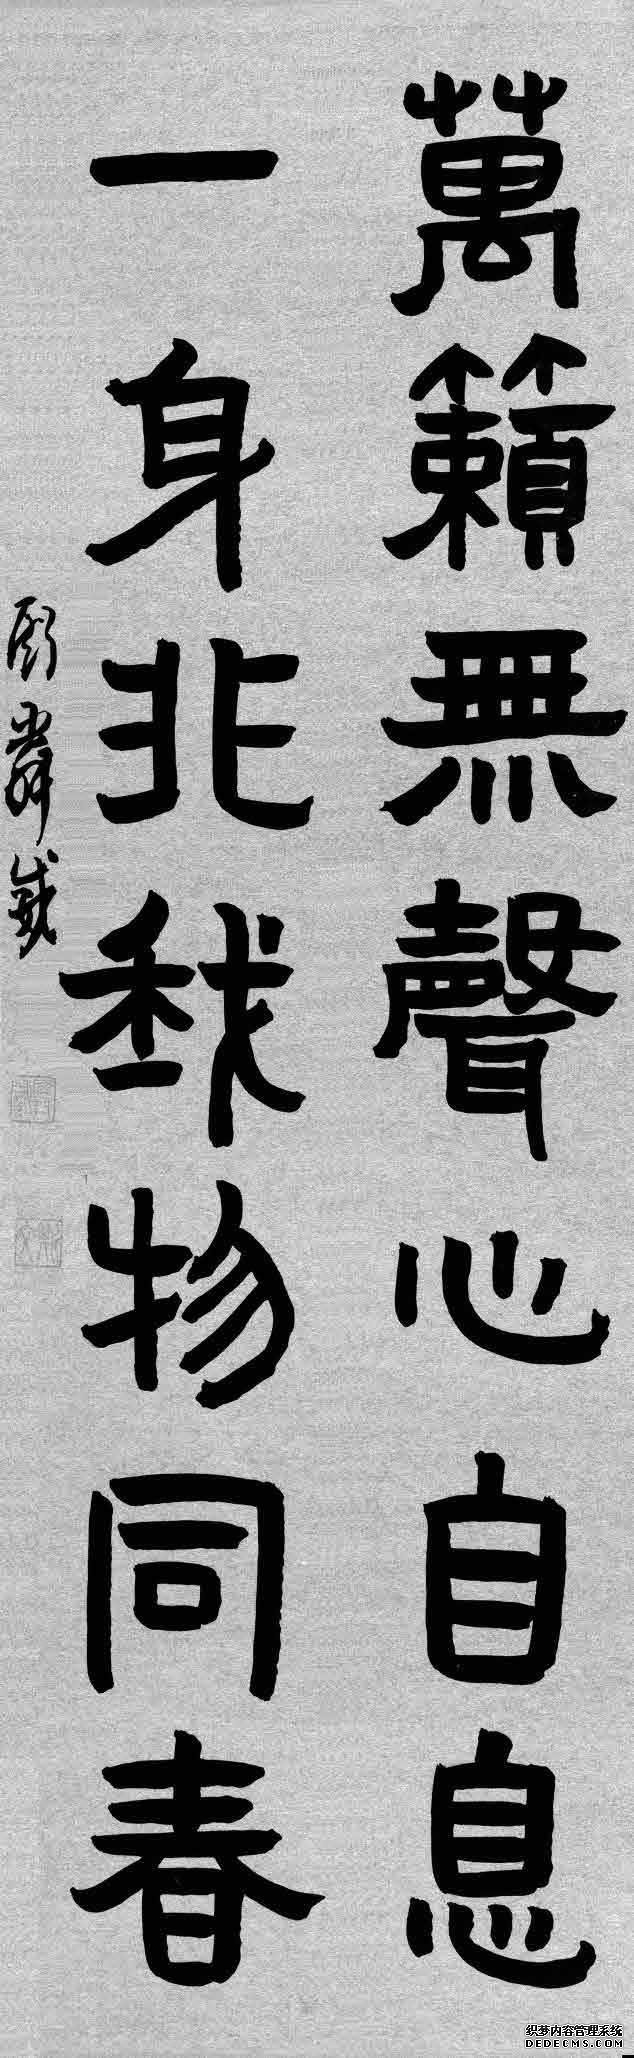 萬籟無聲心自息
一身非我物同春
织梦内容管理系统
DEDECMS.COM